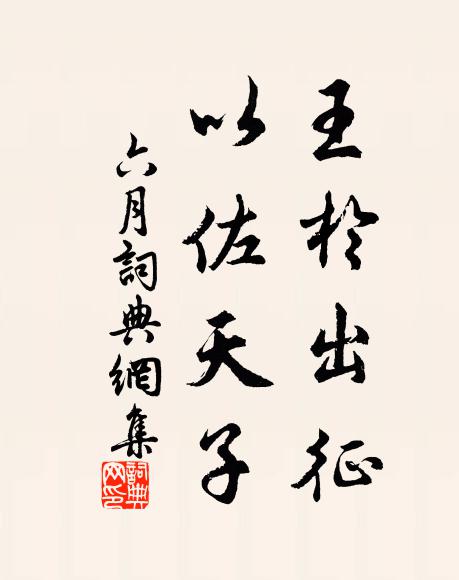 王於出征
以佐天子
六月詞典網集
詞典網印